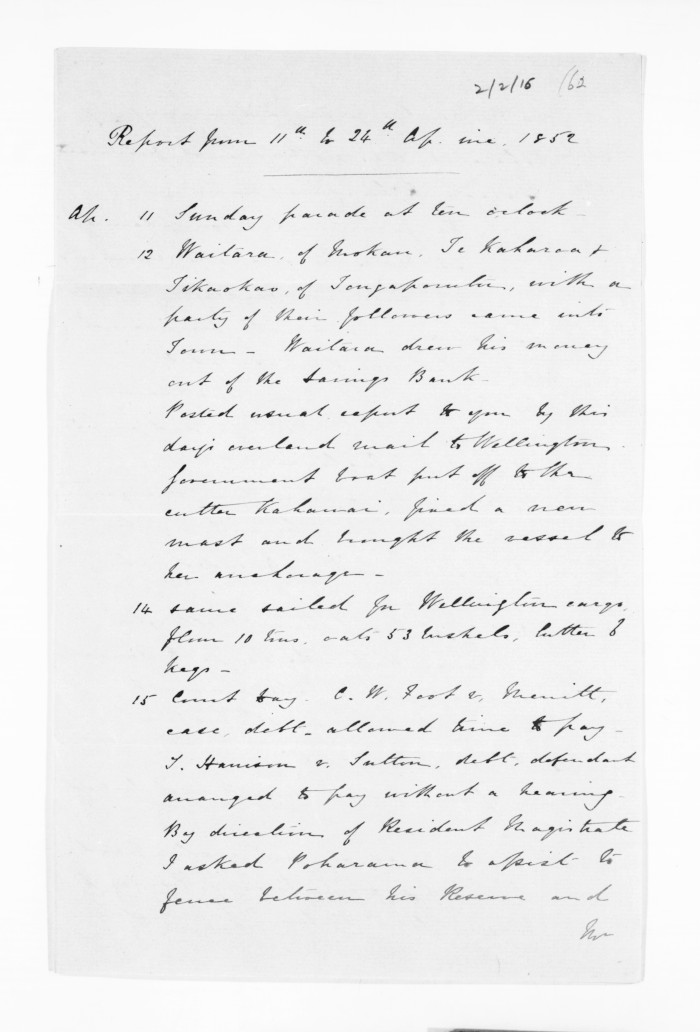 2/2/16 (62
Report from 11th to 24th Ap. inc. 1852
Ap. 11 Sunday parade at ten o'clock -
12 Waitara, of Mokau, Te Kaharoa &
Tikaokao, of Tongaporutu, with a
party of their followers came into
Town - Waitara drew his money
out of the Savings Bank -
Posted usual report to you by this
day's overland mail to Wellington.
Government boat put off to the
cutter Kahawai, fixed a new
mast and brought the vessel to
her anchorage -
14 same sailed for Wellington cargo,
flour 10 tons, oats 53 bushels, butter 6
kegs -
15 Court Day. C. W. Foot v. Merritt,
case, debt - allowed time to pay -
T. Harrison v. Sutton, debt, defendant
arranged to pay without a hearing -
By direction of Resident Magistrate
I asked Poharama to assist to
fence between his Reserve and